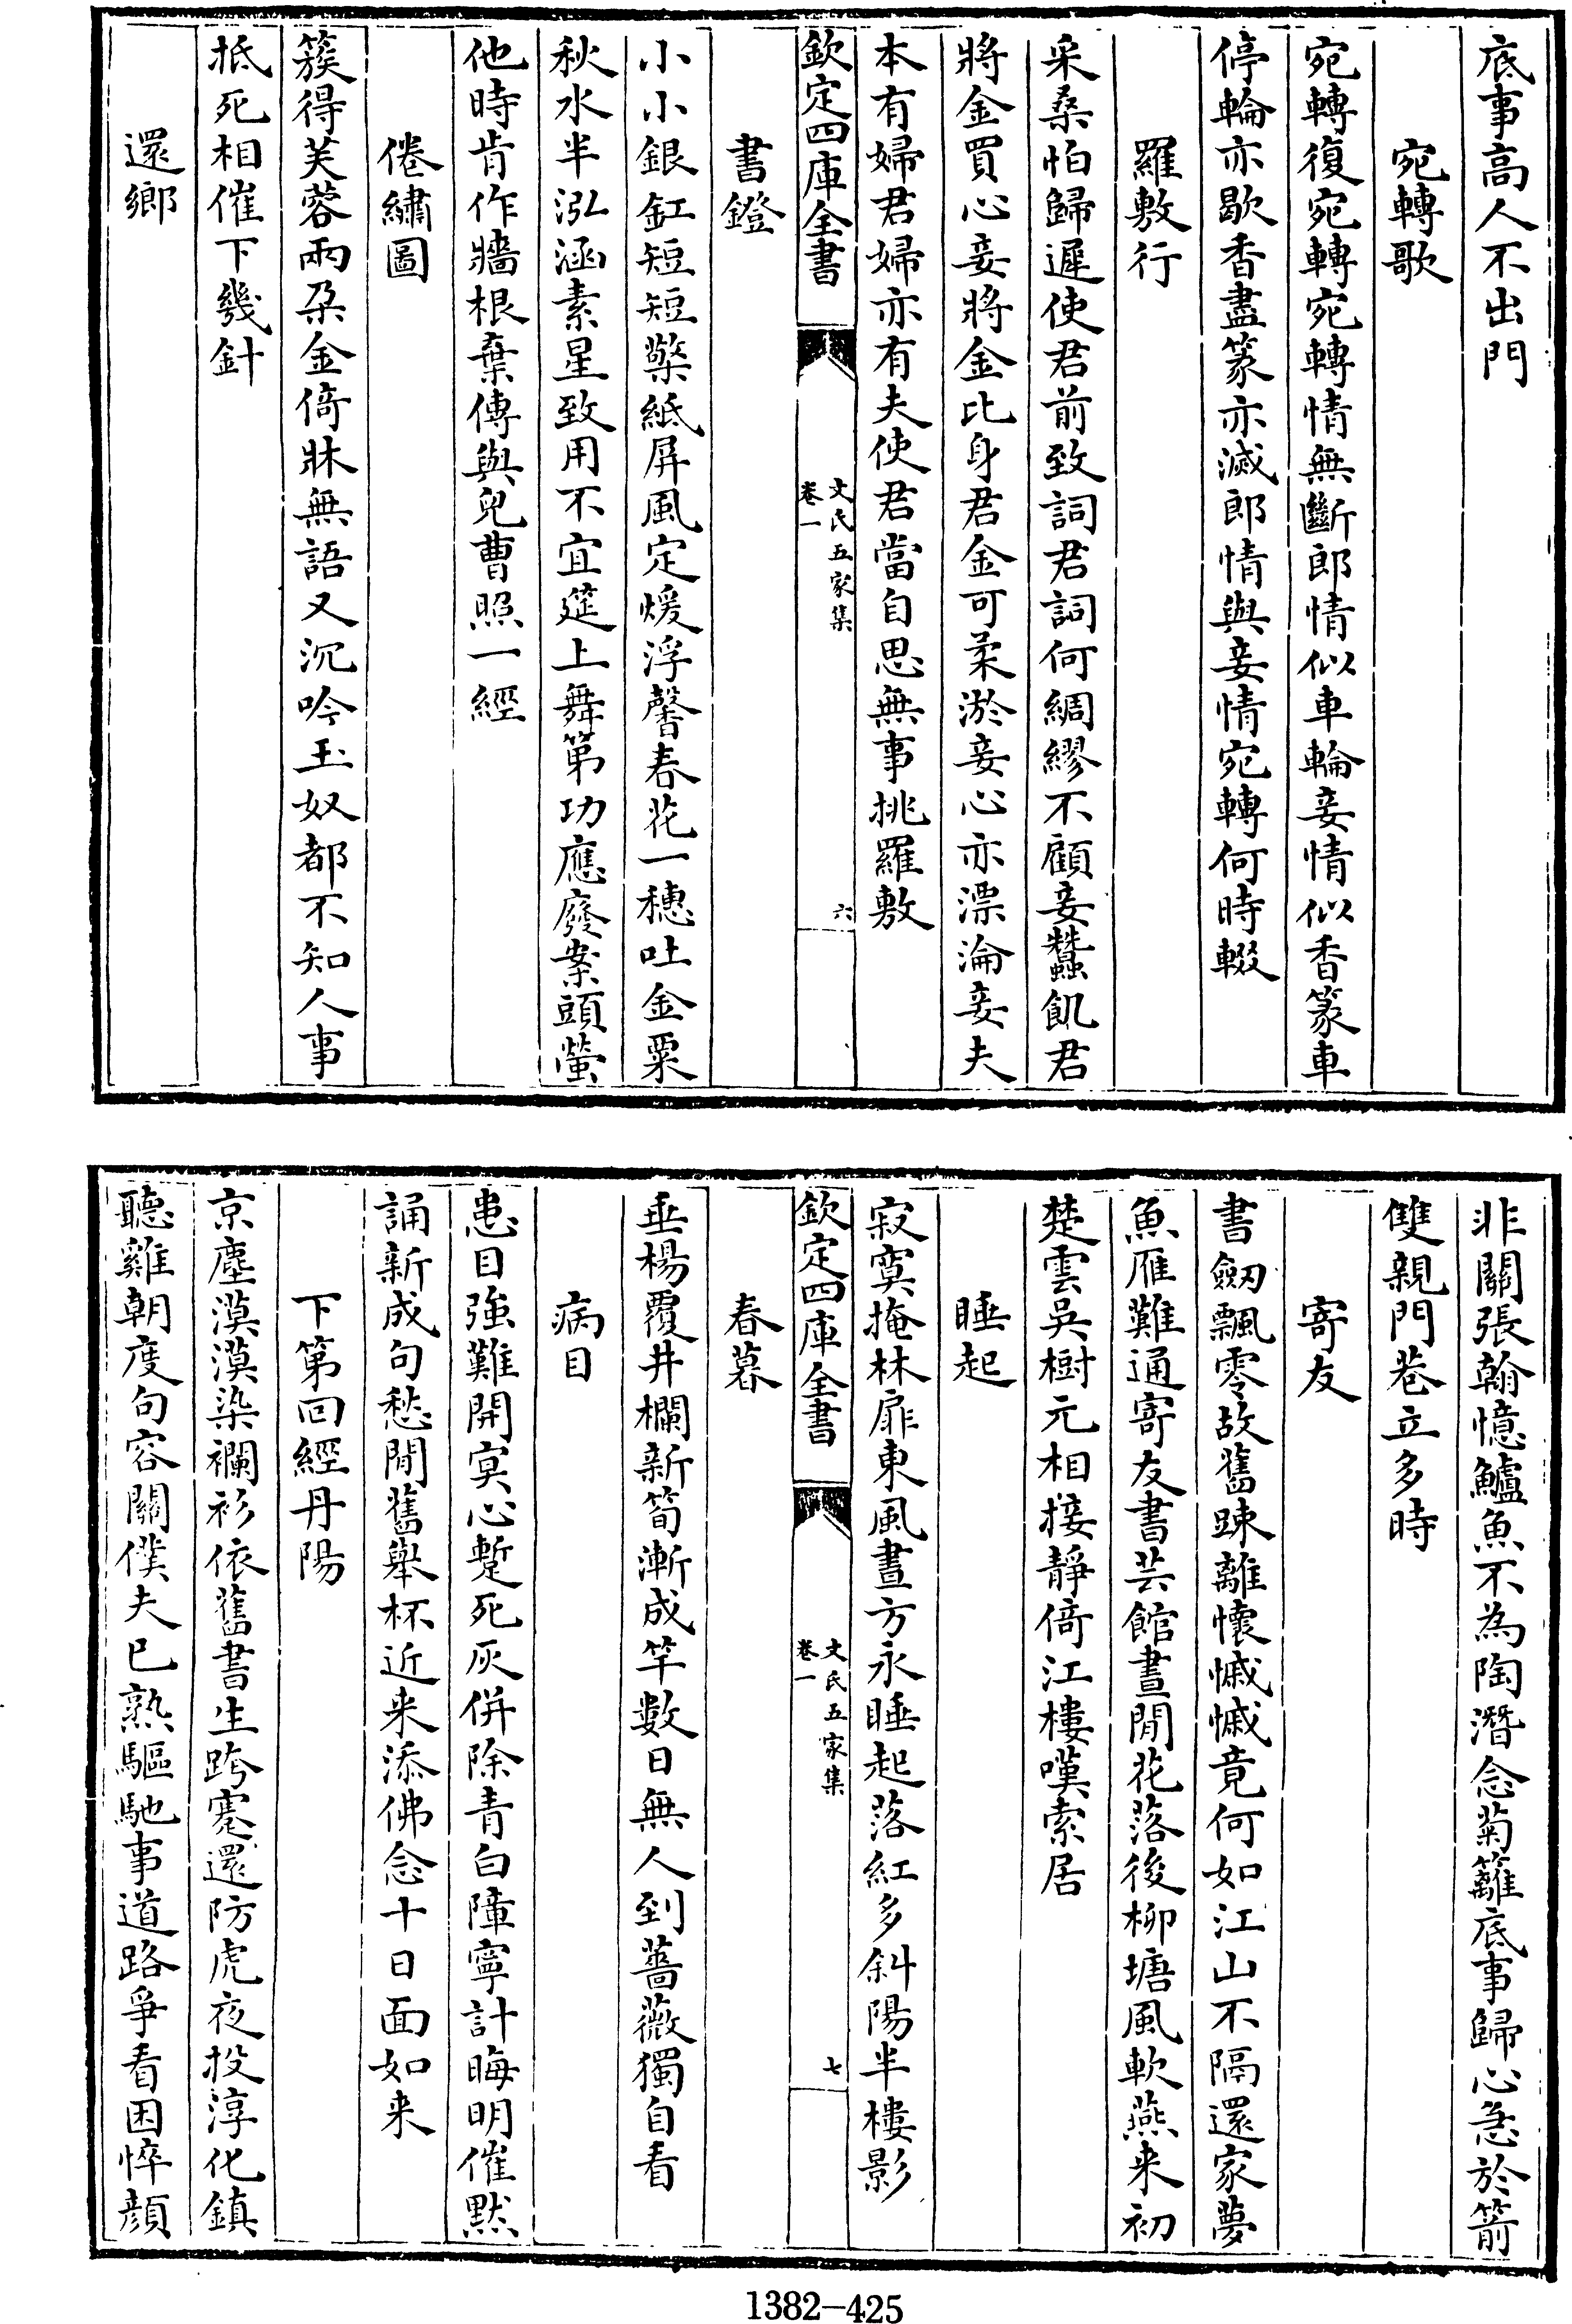 底事高人不出門
宛轉歌
宛轉復宛轉宛轉情無斷郎情似車輪妾情似香篆車
停輪亦歇香盡篆亦滅郎情與妾情宛轉何時輟
羅敷行
采桑怕歸遲使君前致詞君詞何綢繆不顧妾蠶飢君
將金買心妾將金比身君金可柔淤妾心亦漂淪妾夫
本有婦君婦亦有夫使君當自思無事挑羅敷
欽定四庫全書
文氏五家集
卷一
六
書鐙
小小銀缸短短檠紙屏風定煖浮馨春花一穗吐金粟
秋水半泓涵素星致用不宜筵上舞第功應廢案頭螢
他時肯作牆根棄傳與兒曹照一經
倦繡圖
簇得芙蓉兩朶金倚牀無語又沉吟玉奴都不知人事
抵死相催下幾針
還鄉
非關張翰憶鱸魚不為陶潛念菊籬底事歸心急於箭
雙親門巷立多時
寄友
書劒飄零故舊踈離懷慽慽竟何如江山不隔還家夢
魚雁難通寄友書芸館晝閒花落後柳塘風軟燕来初
楚雲吳樹元相接靜倚江樓嘆索居
睡起
寂寞掩林扉東風晝方永睡起落紅多斜陽半樓影
欽定四庫全書
文氏五家集
卷一
七
春暮
垂楊覆井欄新筍漸成竿數日無人到薔薇獨自看
病目
患目強難開寞心蹔死灰併除青白障寧計晦明催默
誦新成句愁閒舊舉杯近来添佛念十日面如来
下第回經丹陽
京塵漠漠染襴衫依舊書生跨蹇還防虎夜投淳化鎮
聽雞朝度句容關僕夫已熟驅馳事道路爭看困悴顔
1382-425